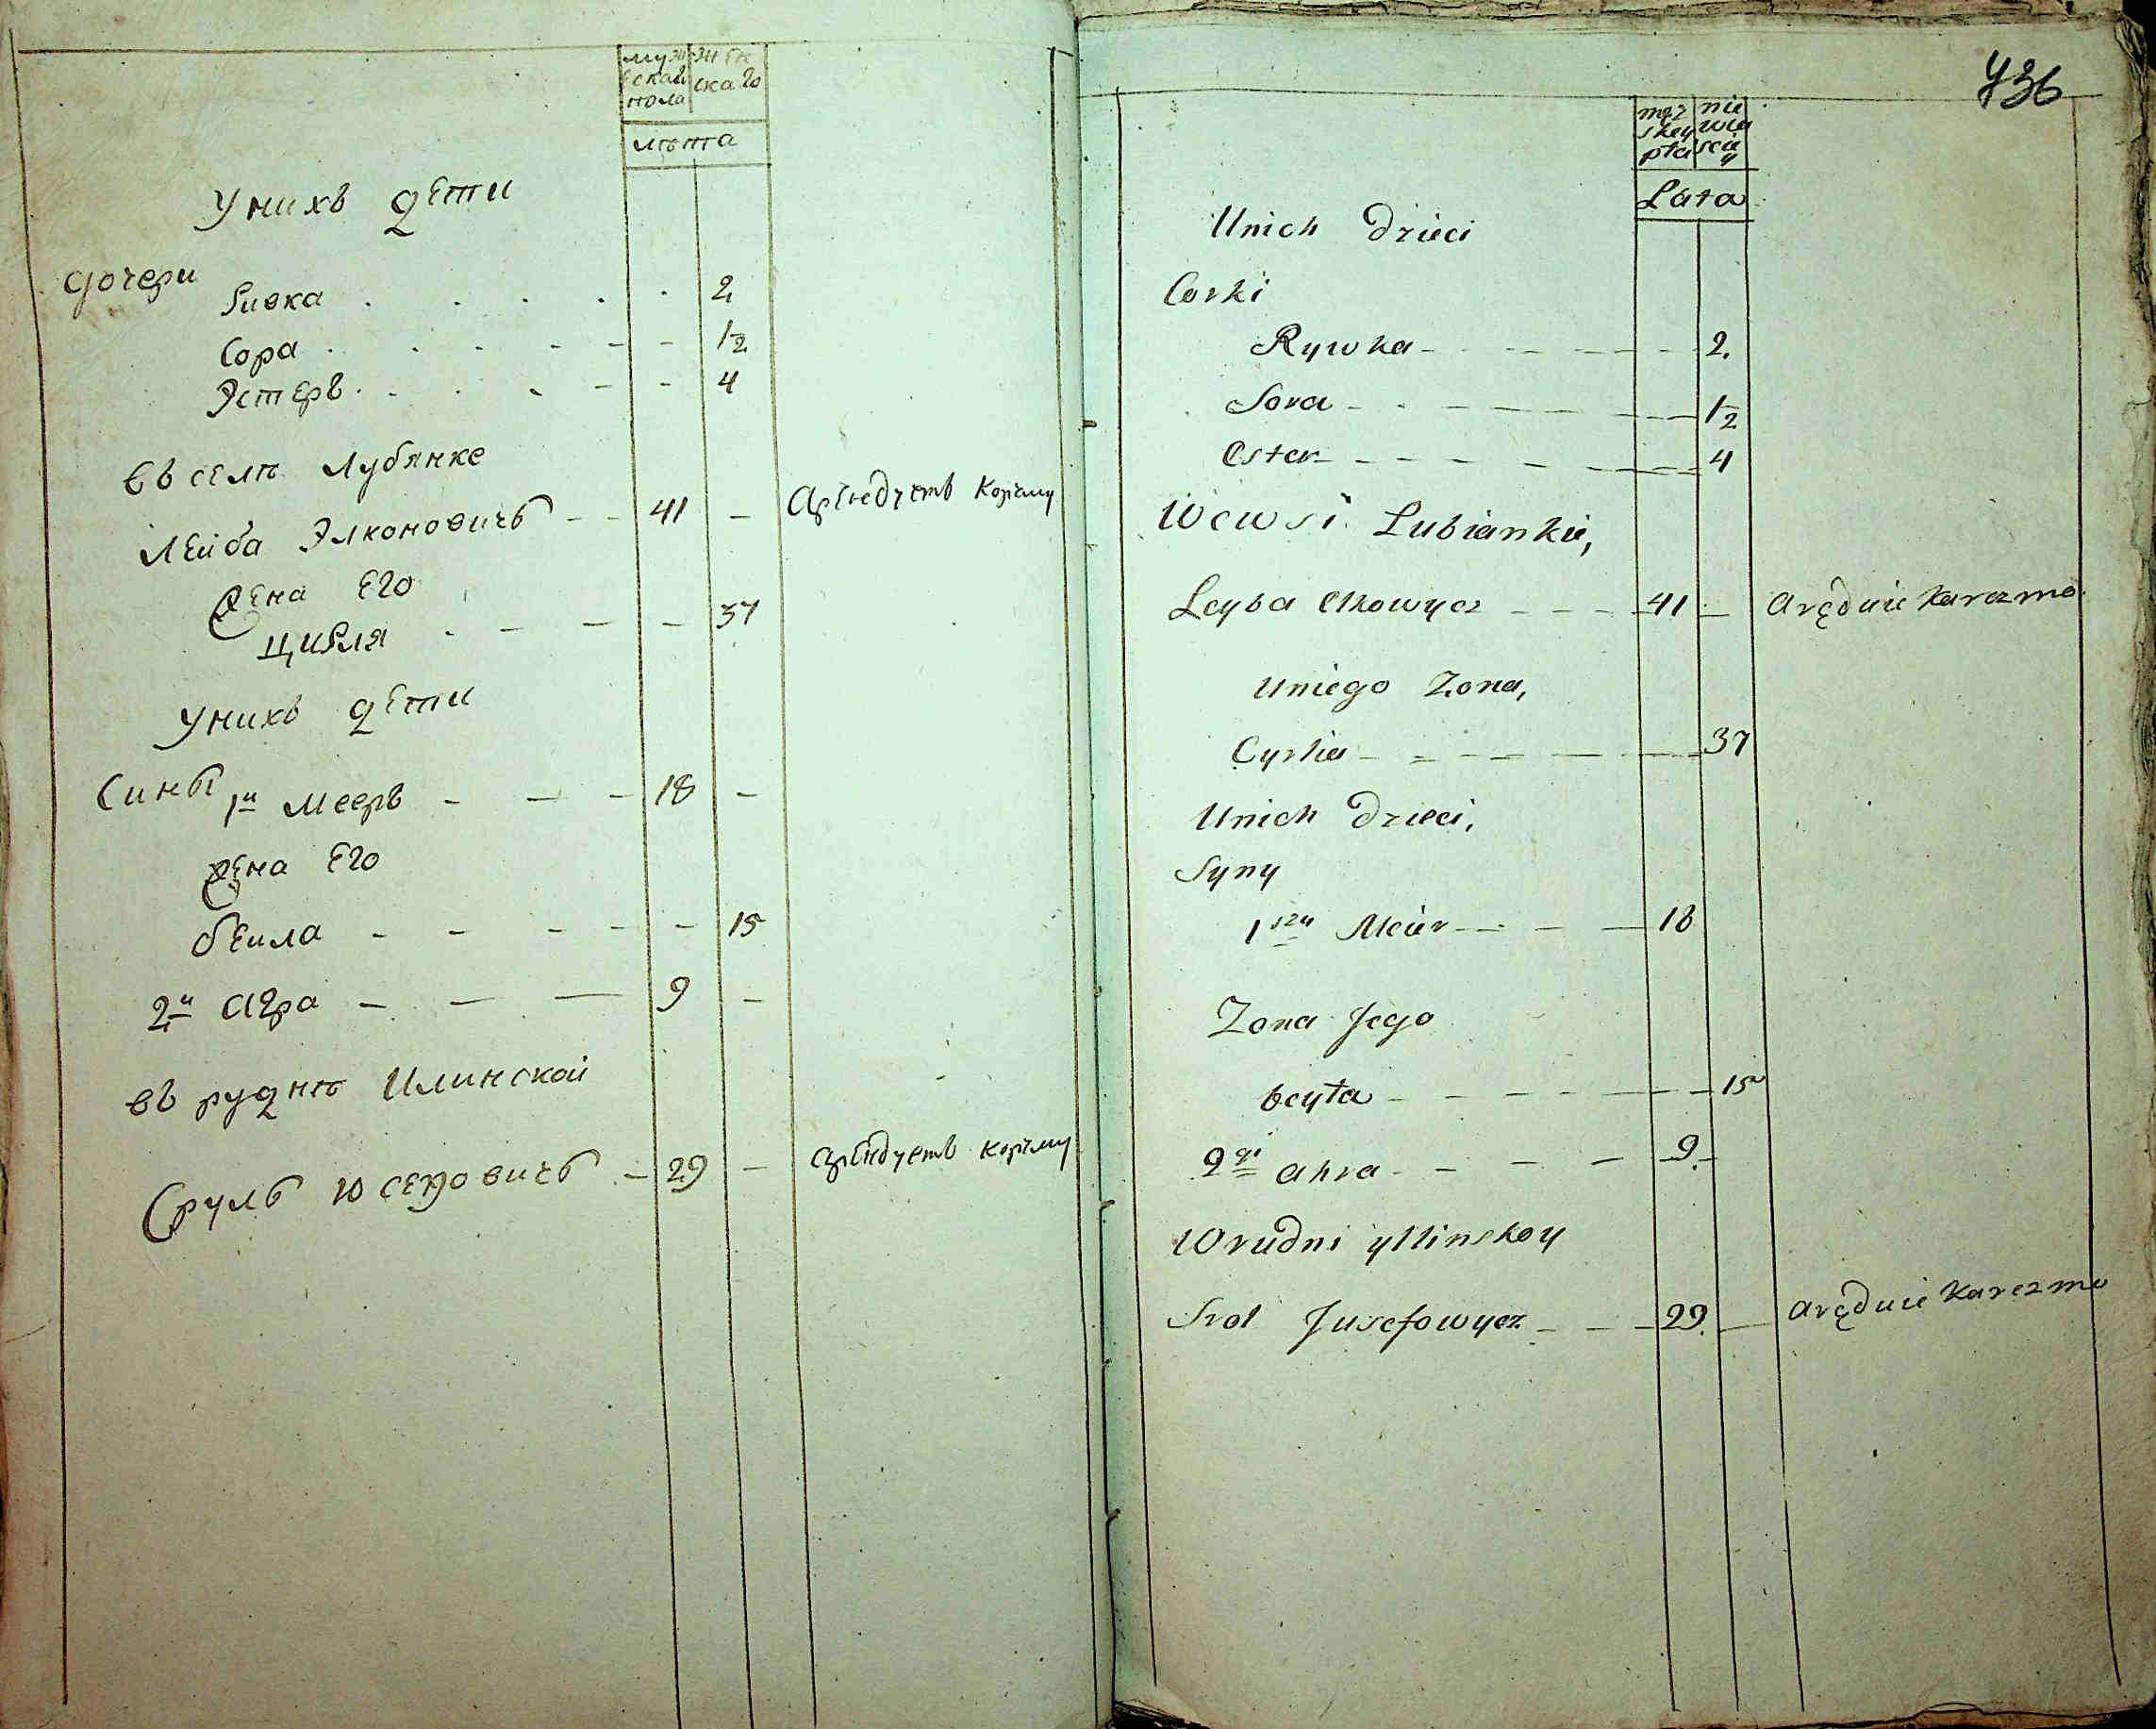 мужескаго пола
женскаго
лѣта
У нихъ дети
дочери
Ривка 2
Сора 1/2
Эстеръ 4
Въ селѣ Лубянке
Лейба Элконовичь 41 Арендуетъ Корчму
Жена Его
Цирля 37
У нихъ дети
Сины
1й Мееръ 18
Жена Его
беила 15
2й Агра 9
въ руднѣ Илинской
Сруль Юсеѳовичь 29 арендуетъ корчму
436
męzskey płci
niewiasciy
Lata
Unich Dzieci
Corki
Rywka 2.
Sora 1/2
Ester 4
Wewsi Lubiankie,
Leyba Elkowycz 41 Arędnie Karczmo
Uniego Zona,
Cyrlia 37
Unich Dzieci,
Syny
1szy Meier 18
Zona Jego
beyła 15
2gi Ahra 9.
Wrudni yllinskoy
Srol Jusefowycz 29. Arędnie Karczmo